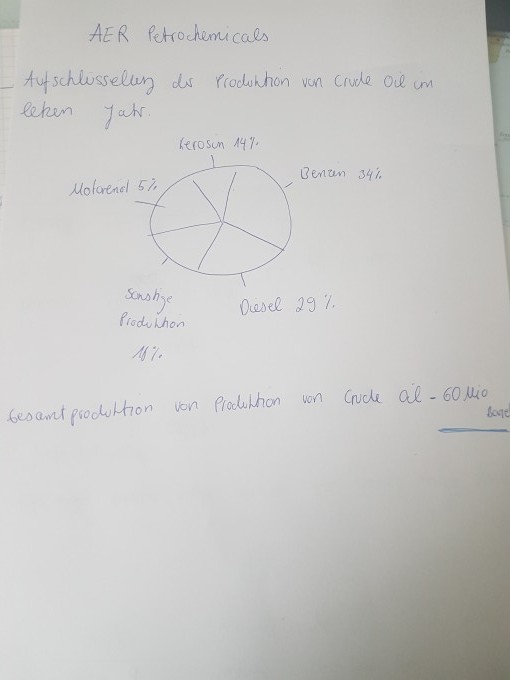 AER Petrochemicals
Aufschlüsselung der Produktion von Crude Oil im
letzten Jahr.
Kerosin 14%
Benzin 34%
Motorenöl 5%
Sonstige
Produktion
18%
Diesel 29%
Gesamtproduktion von Produktion von Crude öl - 60 Mio